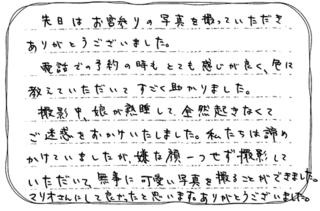 先日はお宮参りの写真を撮っていただき
ありがとうございました。
電話での予約の時もとても感じが良く、色々
教えていただいてすごく助かりました。
撮影中、娘が熟睡して全然起きなくて
ご迷惑をおかけいたしました。私たちは諦め
かけていましたが、嫌な顔一つせず撮影して
いただいて、無事に可愛い写真を撮ることができました。
マリオさんにして良かったと思います。ありがとうございました。